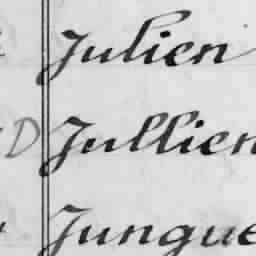 Julien
D Jullien
Jungue